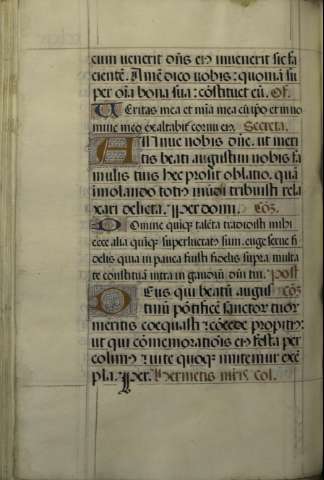 cum venerit dñs ei⁹ invenerit sic fa
cientē. Amē dico vobis: quoniā su
per oīa bona sua: cōstituet eū. Of.
Veritas mea et mīa mea cū ipo et in no
mine meo exaltabit̄ cornu ei⁹. Secreta.
Annue nobis dñe. ut meri
tis beati augustini nobis fa
mulis tuis hec prosit oblatio. quā
imolando toti⁹ mūdi tribuisti rela
xari delicta. Per domī. Cōō.
Domine quiq̄ talēta tradidisti mihi
ecce alia quiq̄ superlucrat⁹ sum. euge serve fi
delis quia in pauca fuisti fidelis supra multa
te constituā intra in gaudiū dñi tui. Post
Deus qui beatū augus cōō
tinū pōtificē sanctor̄ tuor̄
meritis coequasti ⁊ cōcede propiti⁹:
ut qui cōmemorationis ei⁹ festa per
colim⁹ ⁊ vite quoq̄ imitemur exē
pla. Per. Hermetis mīrīs. Col.